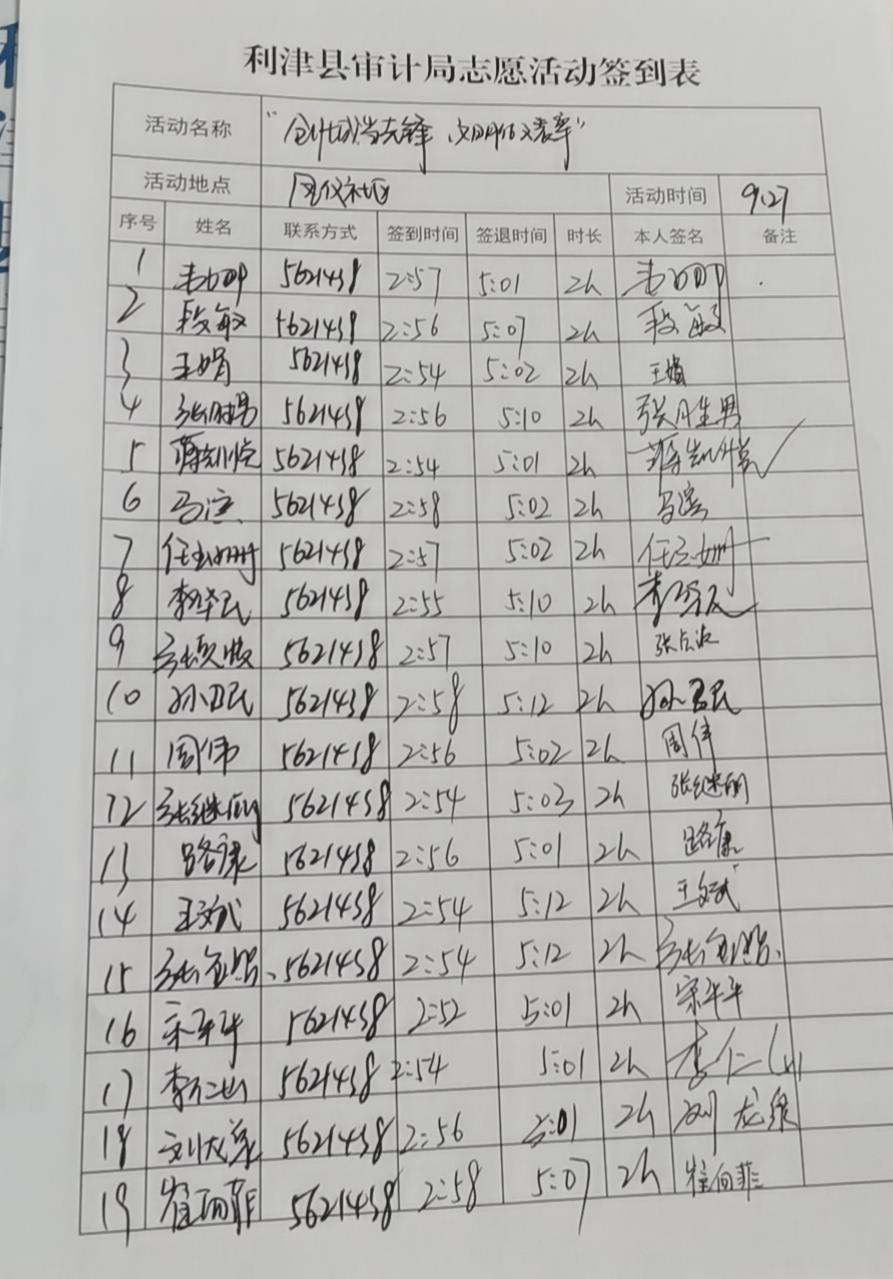 利津县审计局志愿活动签到表
活动名称
活动地点 社区 活动时间 9.27
序号 姓名 联系方式 签到时间 签退时间 时长 本人签名 备注
1 5621438 2:57 5:01 2h
2 段敏 5621438 2:56 5:07 2h 段敏
3 王娟 5621438 2:54 5:02 2h 王娟
4 张胜男 5621438 2:56 5:10 2h 张胜男
5 蒋凯悦 5621438 2:54 5:01 2h 蒋凯悦
6 5621438 2:58 5:02 2h
7 任玉姗 5621438 2:57 5:02 2h 任玉姗
8 李泽民 5621438 2:55 5:10 2h 李泽民
9 5621438 2:57 5:10 2h
10 5621438 2:58 5:12 2h
11 周伟 5621438 2:56 5:02 2h 周伟
12 张继 5621438 2:54 5:03 2h 张继
13 路康 5621438 2:56 5:01 2h 路康
14 王文武 5621438 2:54 5:12 2h 王文武
15 5621438 2:54 5:12 2h
16 宋平平 5621438 2:52 5:01 2h 宋平平
17 李仁山 5621438 2:54 5:01 2h 李仁山
18 刘龙 5621438 2:56 5:01 2h 刘龙
19 崔向菲 5621438 2:58 5:07 2h 崔向菲